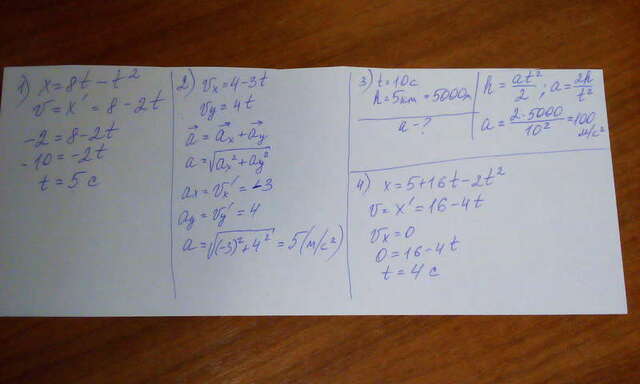 1) x = 8t - t²
v = x' = 8 - 2t
-2 = 8 - 2t
-10 = -2t
t = 5 c
2) vx = 4 - 3t
vy = 4t
a⃗ = a⃗x + a⃗y
a = √(ax² + ay²)
ax = vx' = -3
ay = vy' = 4
a = √((-3)² + 4²) = 5 (м/с²)
3) t = 10c
h = 5км = 5000м
a - ?
h = at²/2 ; a = 2h/t²
a = 2·5000/10² = 100 м/с²
4) x = 5 + 16t - 2t²
v = x' = 16 - 4t
vx = 0
0 = 16 - 4t
t = 4 c